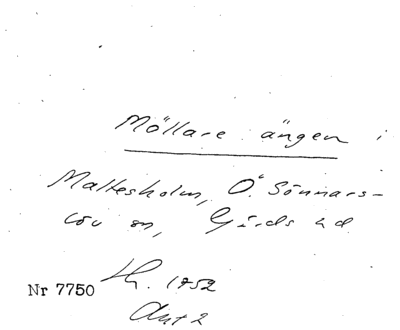 Möllare ängen i
Maltesholm, Ö. Sönnars-
löv sn, Gärds hd
Nr 7750
1952
Avt 2